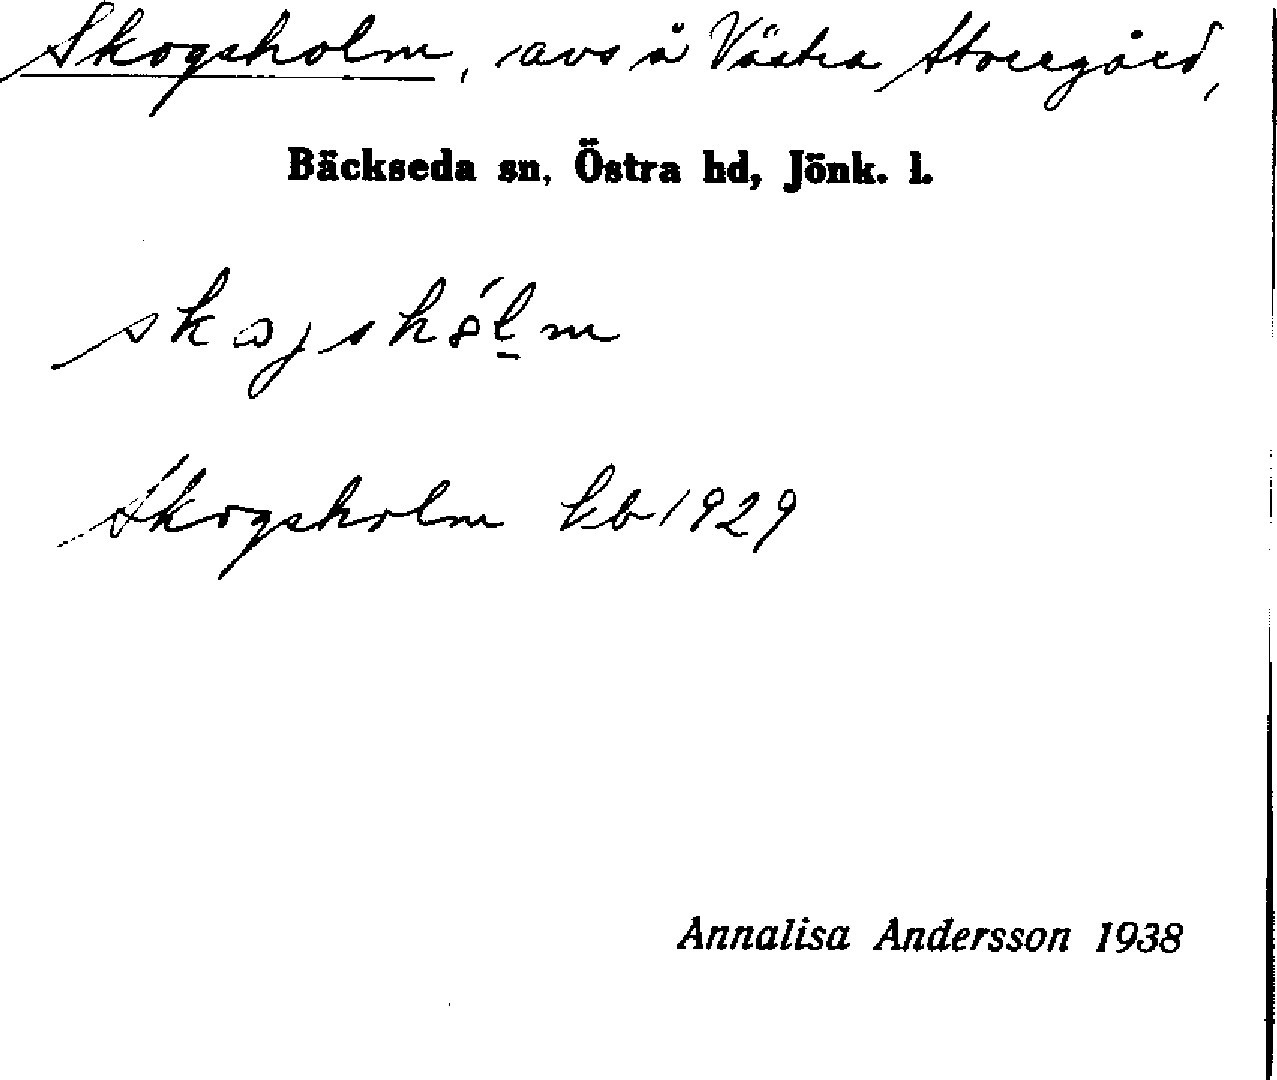 Skogsholm, avs å Västra Storegård,
Bäckseda sn, Östra hd, Jönk. l.
Skogsholm kb 1929
Annalisa Andersson 1938